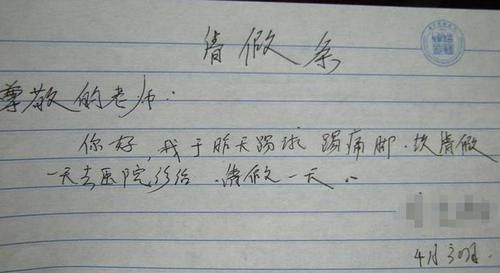 请假条
尊敬的老师:
你好,我于昨天踢球踢痛脚.故请假
一天去医院诊治.请假一天..
4月30日